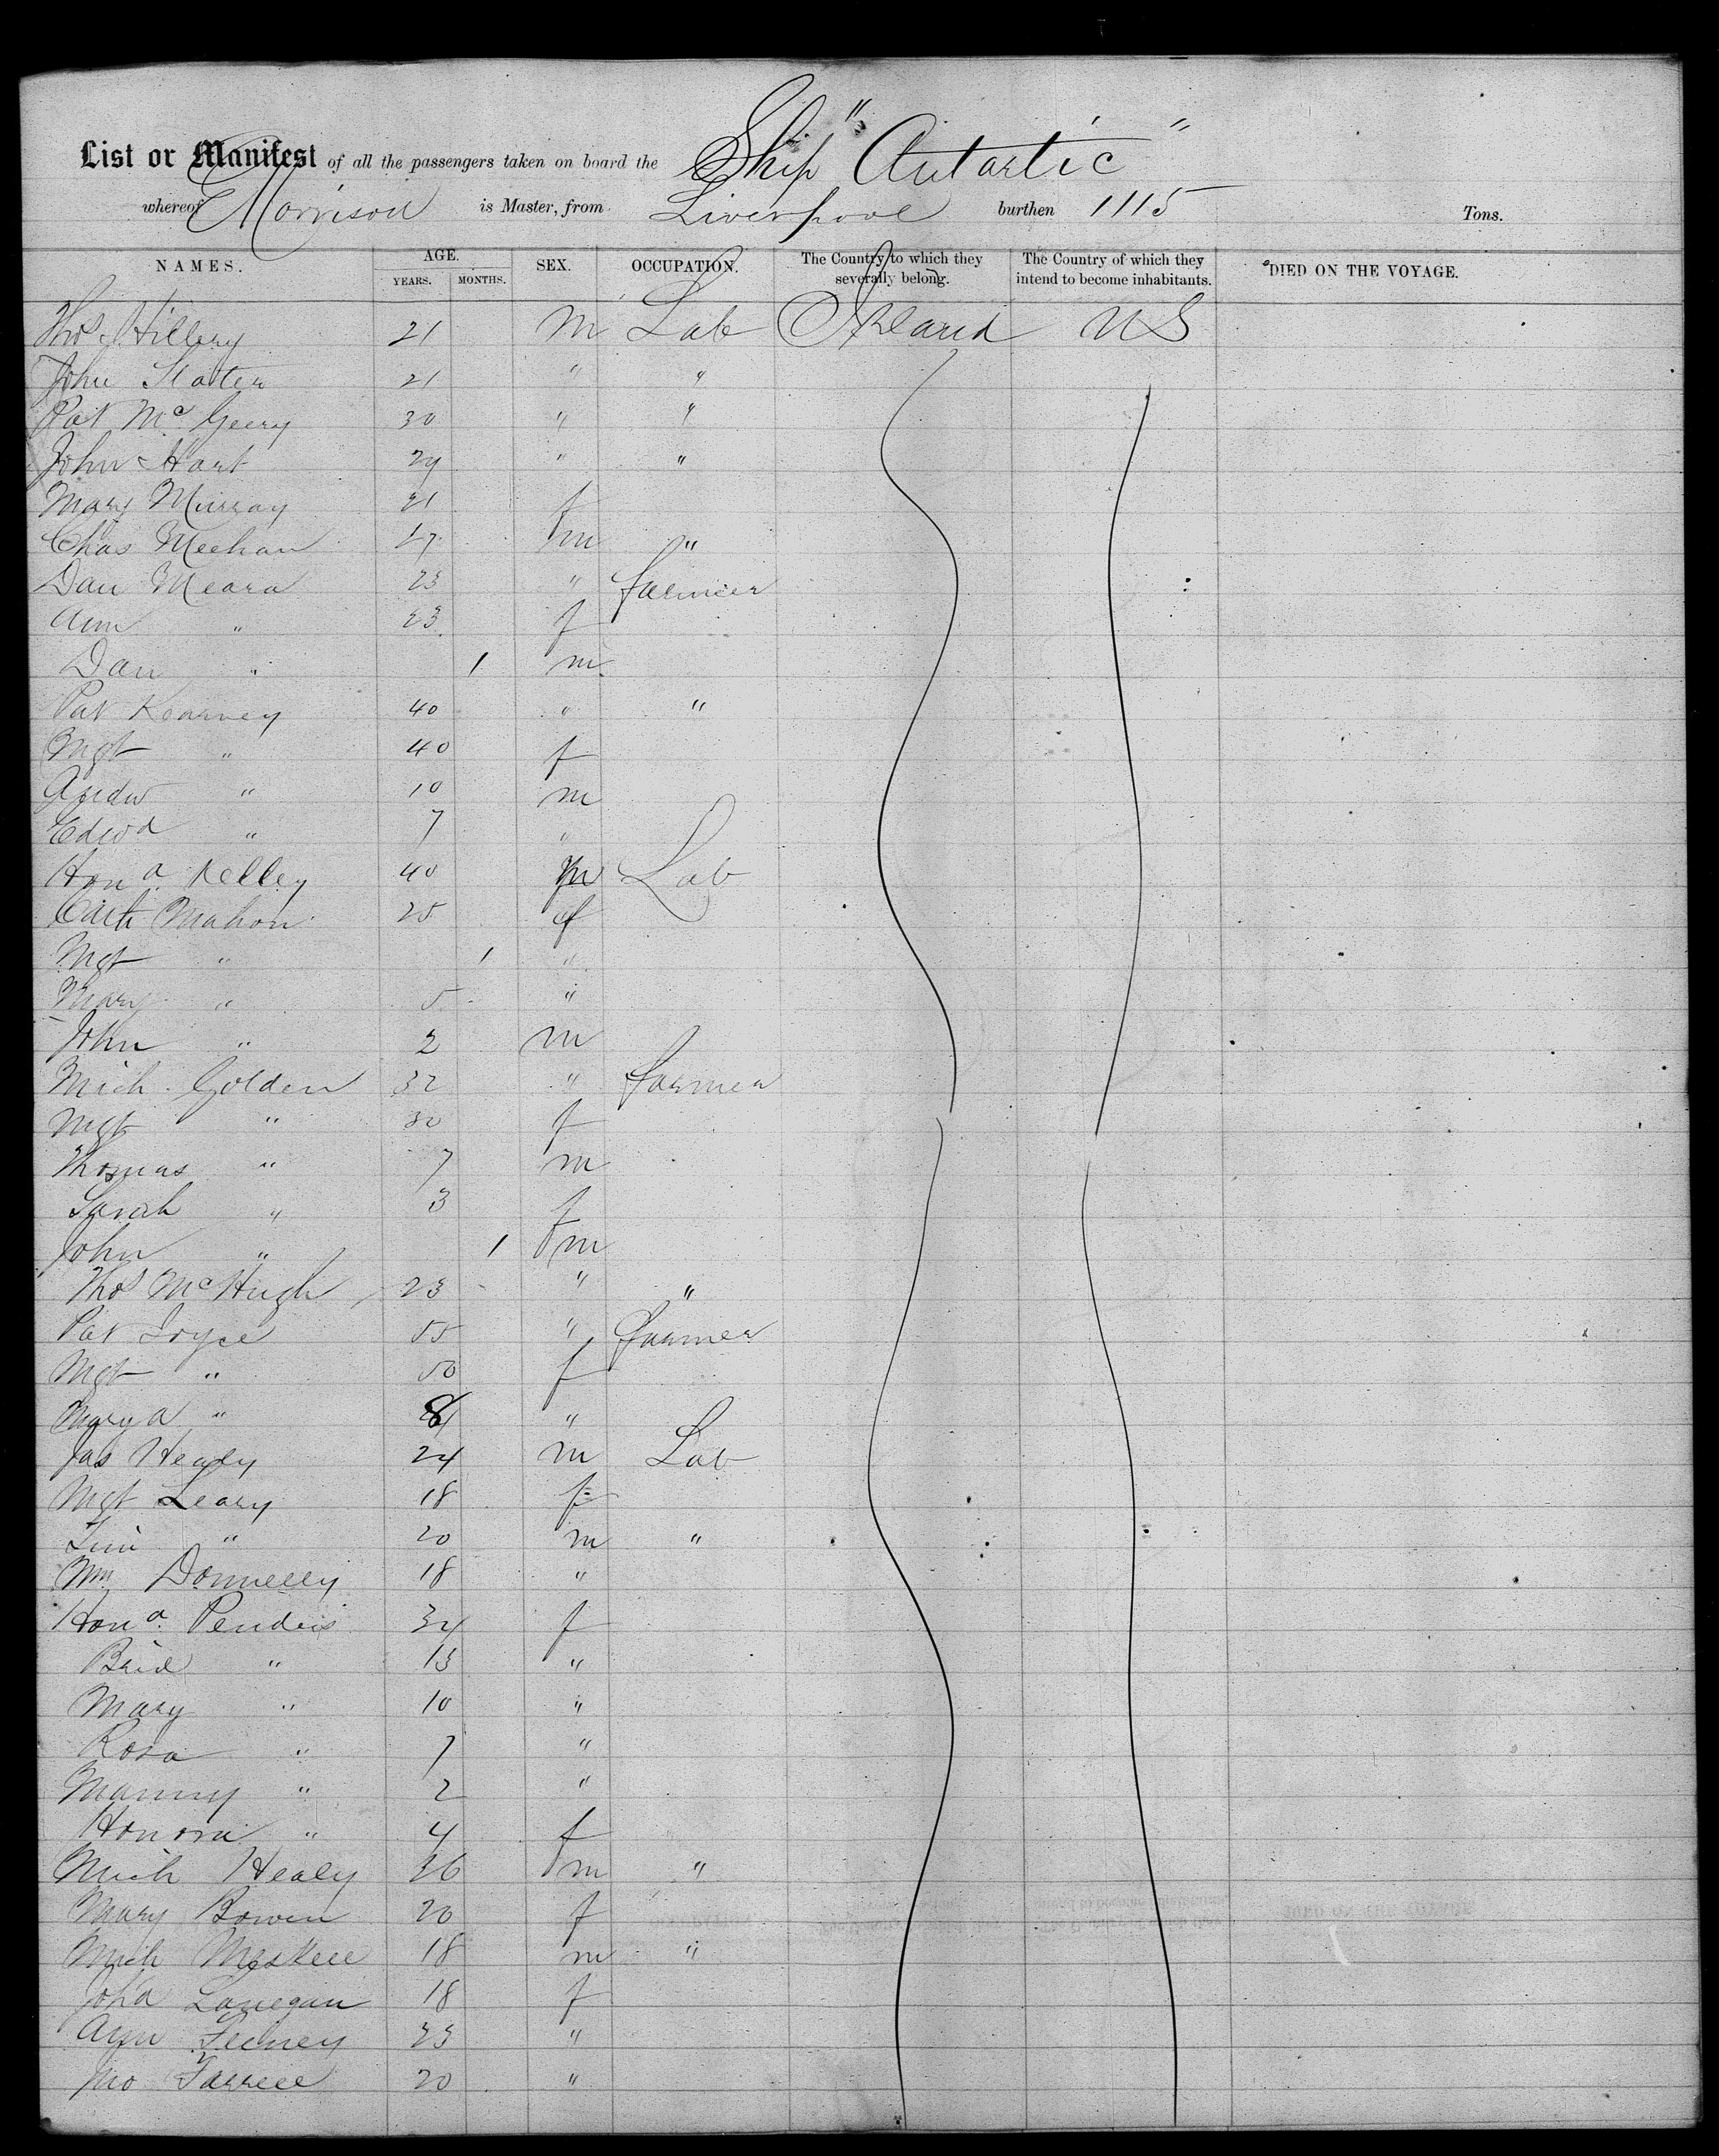 List or Manifest of all the passengers taken on board the Ship "Antartic"
whereof Morrison is Master, from Liverpool burthen 1115 Tons.
NAMES. AGE. SEX. OCCUPATION. The Country to which they severally belong. The Country of which they intend to become inhabitants. DIED ON THE VOYAGE.
YEARS. MONTHS.
Thos Hillery 21 m Lab Ireland US
John Slater 21 " "
Pat Mc Geery 30 " "
John Hart 24 " "
Mary Murray 21 f
Chas Meehan 17 m "
Dan Meara 23 " farmer
Ann " 23 f
Dan " 1 m
Pat Kearney 40 " "
Mgt " 40 f
Andw " 10 m
Edwd " 7 "
Hona Kelley 40 m Lab
Cath Mahon 25 f
Mgt " 1 "
Mary " 5 "
John " 2 m
Mich Golden 32 " farmer
Mgt " 30 f
Thomas " 7 m
Sarah " 3 f
John " 1 m
Thos McHugh 23 " "
Pat Joyce 55 " farmer
Mgt " 50 f
Mary a " "
Jas Heady 24 m Lab
Mgt Leary 18 f
Tim " 20 m "
Wm Donnelly 18 "
Hona Penders 34 f
Brid " 13 "
Mary " 10 "
Rosa " 7 "
Manny " 2 "
Honora " 4 f
Mich Healy 36 m "
Mary Bowen 20 f
Mich Meskell 18 m "
Joha Lanegan 18 f
Ann Feeney 23 "
Jno Farrell 20 "